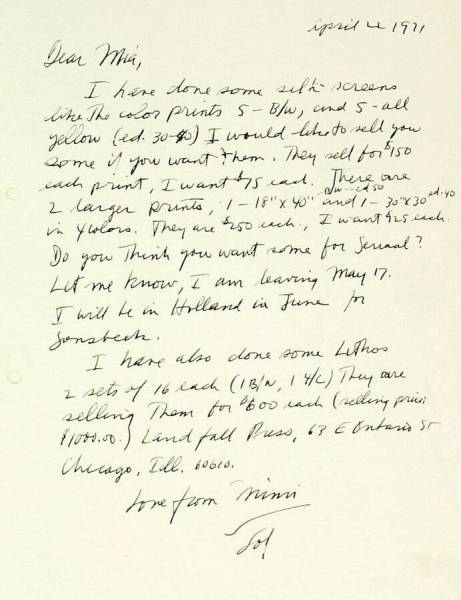 April 22 1971
Dear Mia,
I have done some silk screens
like the color prints 5 - B/W, and 5 - all
yellow (ed. 30-40) I would like to sell you
some if you want them. They sell for $150
each print, I want $75 each. There are
2 larger prints, 1 - 18" x 40" B/W - ed 50 and 1 - 30" x 30" ed. 40
in 4 colors. They are $250 each, I want $125 each.
Do you think you want some for Seriaal?
Let me know, I am leaving May 17.
I will be in Holland in June for
Sonsbeek.
I have also done some Lithos
2 sets of 16 each (1 B/W, 1 4/C) They are
selling them for $600 each (selling price
$1000.00.) Landfall Press, 63 E Ontario St
Chicago, Ill. 60610.
Love from Mimi
Sol